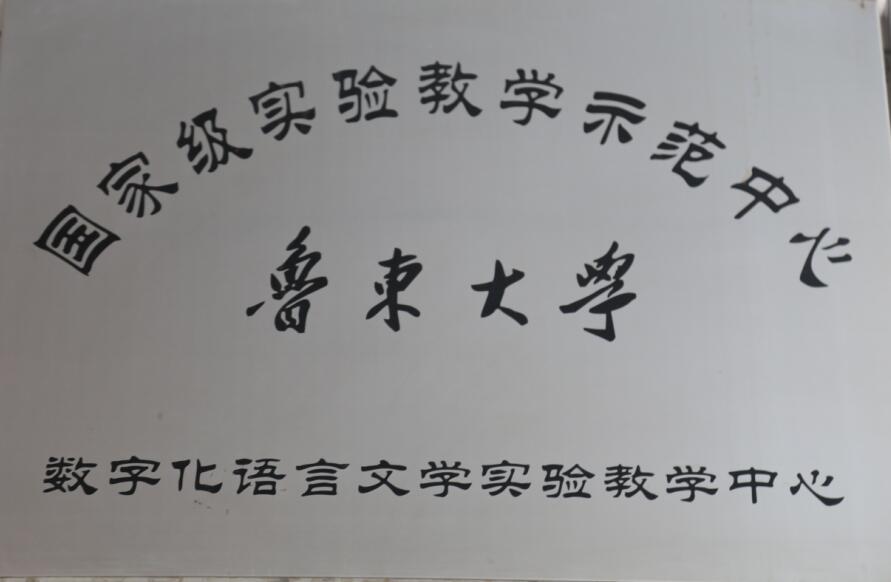 国家级实验教学示范中心
魯東大學
数字化语言文学实验教学中心